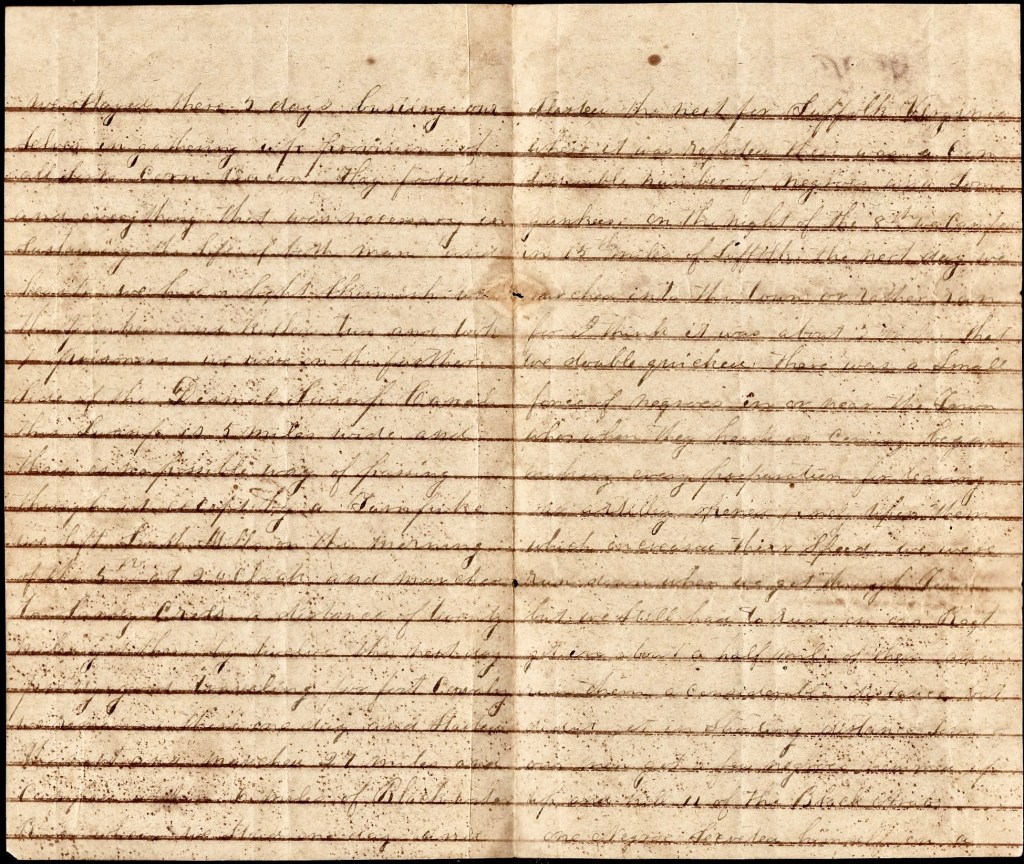 we stayed there 5 days busiing our
selves in gathering up provision of
all kinds Corn Bacon Hay fodder
and everything that was necessary in
sustaining the life of both man and
beast we had a slight skirmish with
the yankees and killed two and took
prisoners we were on the farther
side of the Dismal Swamp Canal
this Swamp is 5 miles wide and
there is no possible way of passing
through it except by a Turnpike
we left South Mills on the morning
of the 5th at 2 oclock and marched
to a distance of twenty
by twelve the next day
good traveling for foot Cavalry
we remained there one day and started
the next and marched 27 miles and
Camped miles of Black water
one day and
started the next for Suffolk Virginia
where it was reported there was a Con
siderable number of Negroes and some
yankees on the night of the 8th we Camped
in 15 miles of Suffolk the next day we
marched into the town or rather ran
for I think it was about 2 that
we double quicked there was a small
force of negroes in or near the town
when they heard us coming began
making every preparation for leaving
artillery opened upon them
which increased their speed we were
run down when we got through Town
but we still had to run on our Regt
got in about a half mile of them
run them a considerable distance but
could not get in shooting distance
our men got a few negroes
up and kill 11 of the Black
one negroe himself in a